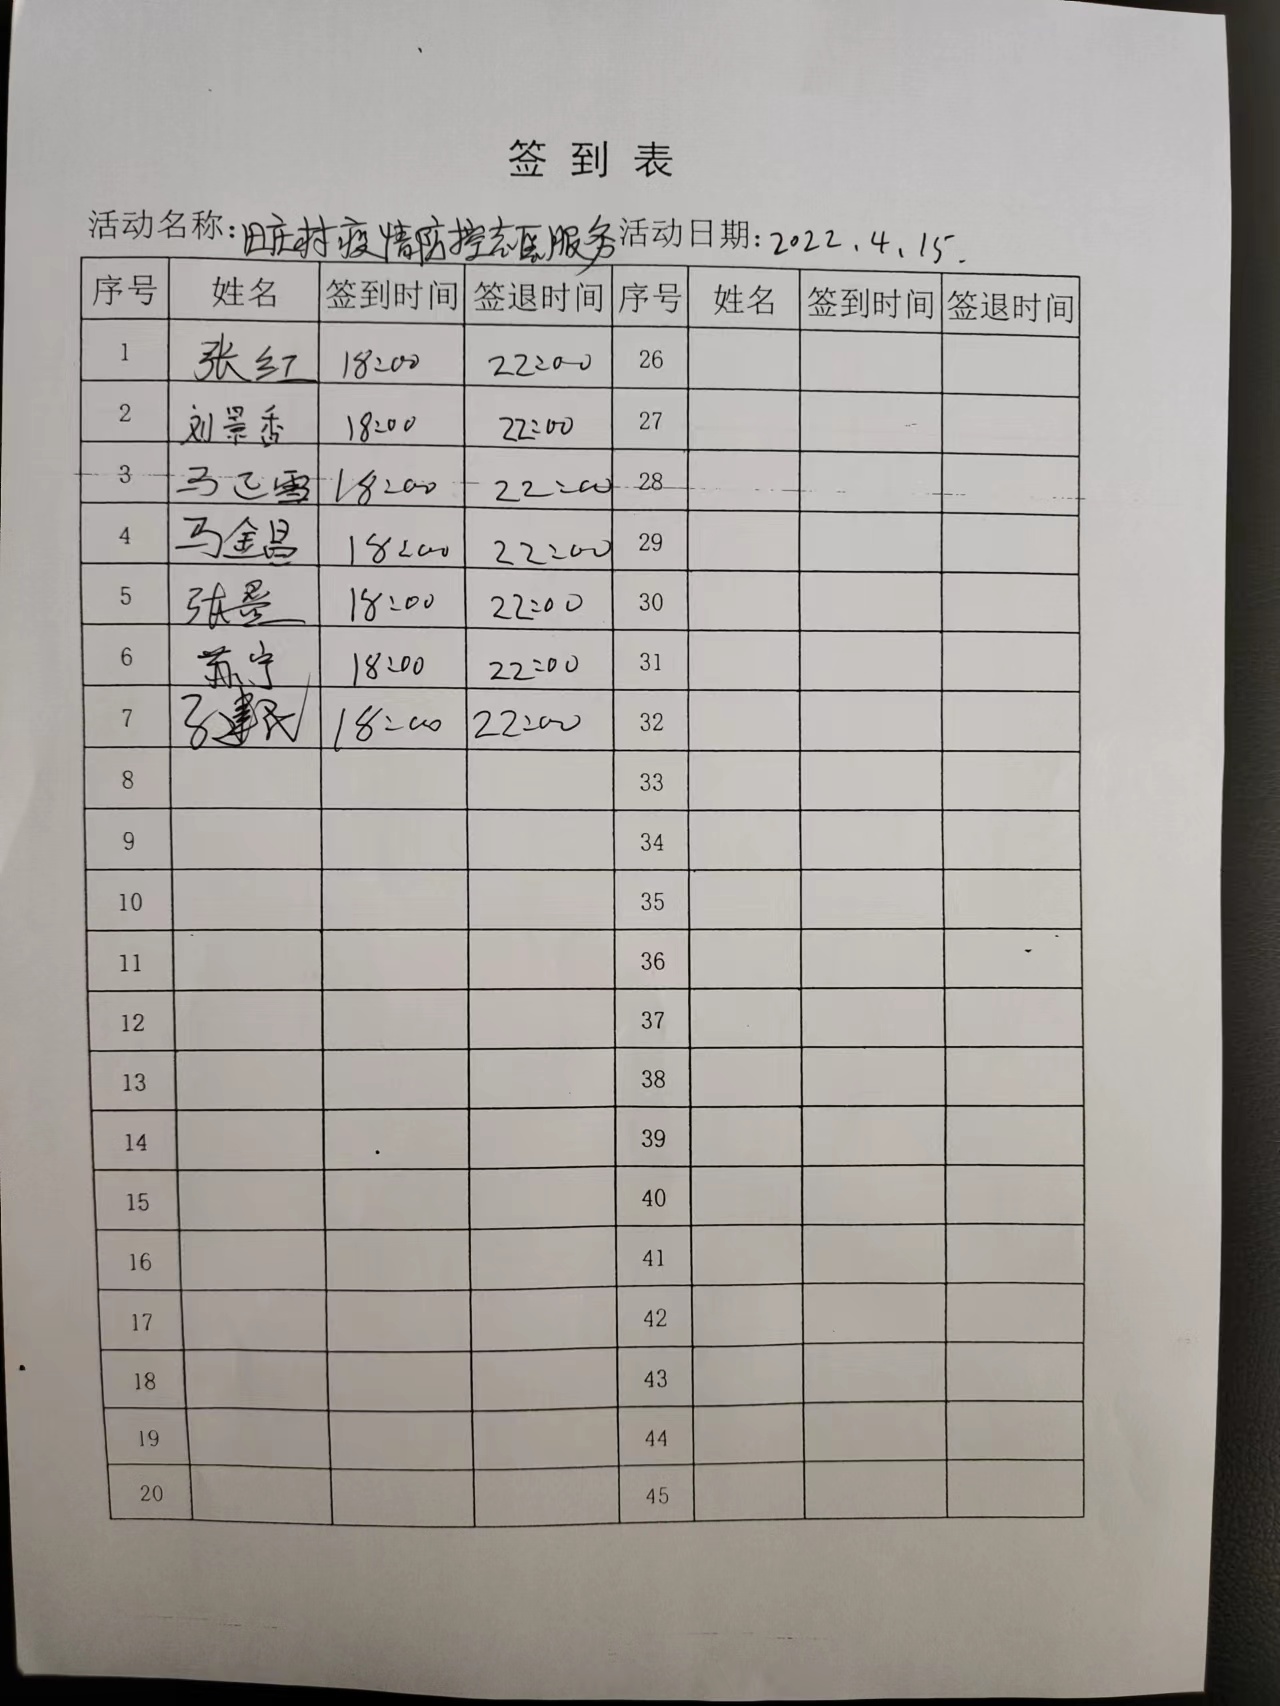 签到表
活动名称:田庄村疫情防控志愿服务 活动日期:2022.4.15.
序号 姓名 签到时间 签退时间 序号 姓名 签到时间 签退时间
1 张红 18:00 22:00 26
2 刘景香 18:00 22:00 27
3 马 雪 18:00 22:00 28
4 马金昌 18:00 22:00 29
5 张 18:00 22:00 30
6 苏宁 18:00 22:00 31
7 建民 18:00 22:00 32
8 33
9 34
10 35
11 36
12 37
13 38
14 39
15 40
16 41
17 42
18 43
19 44
20 45